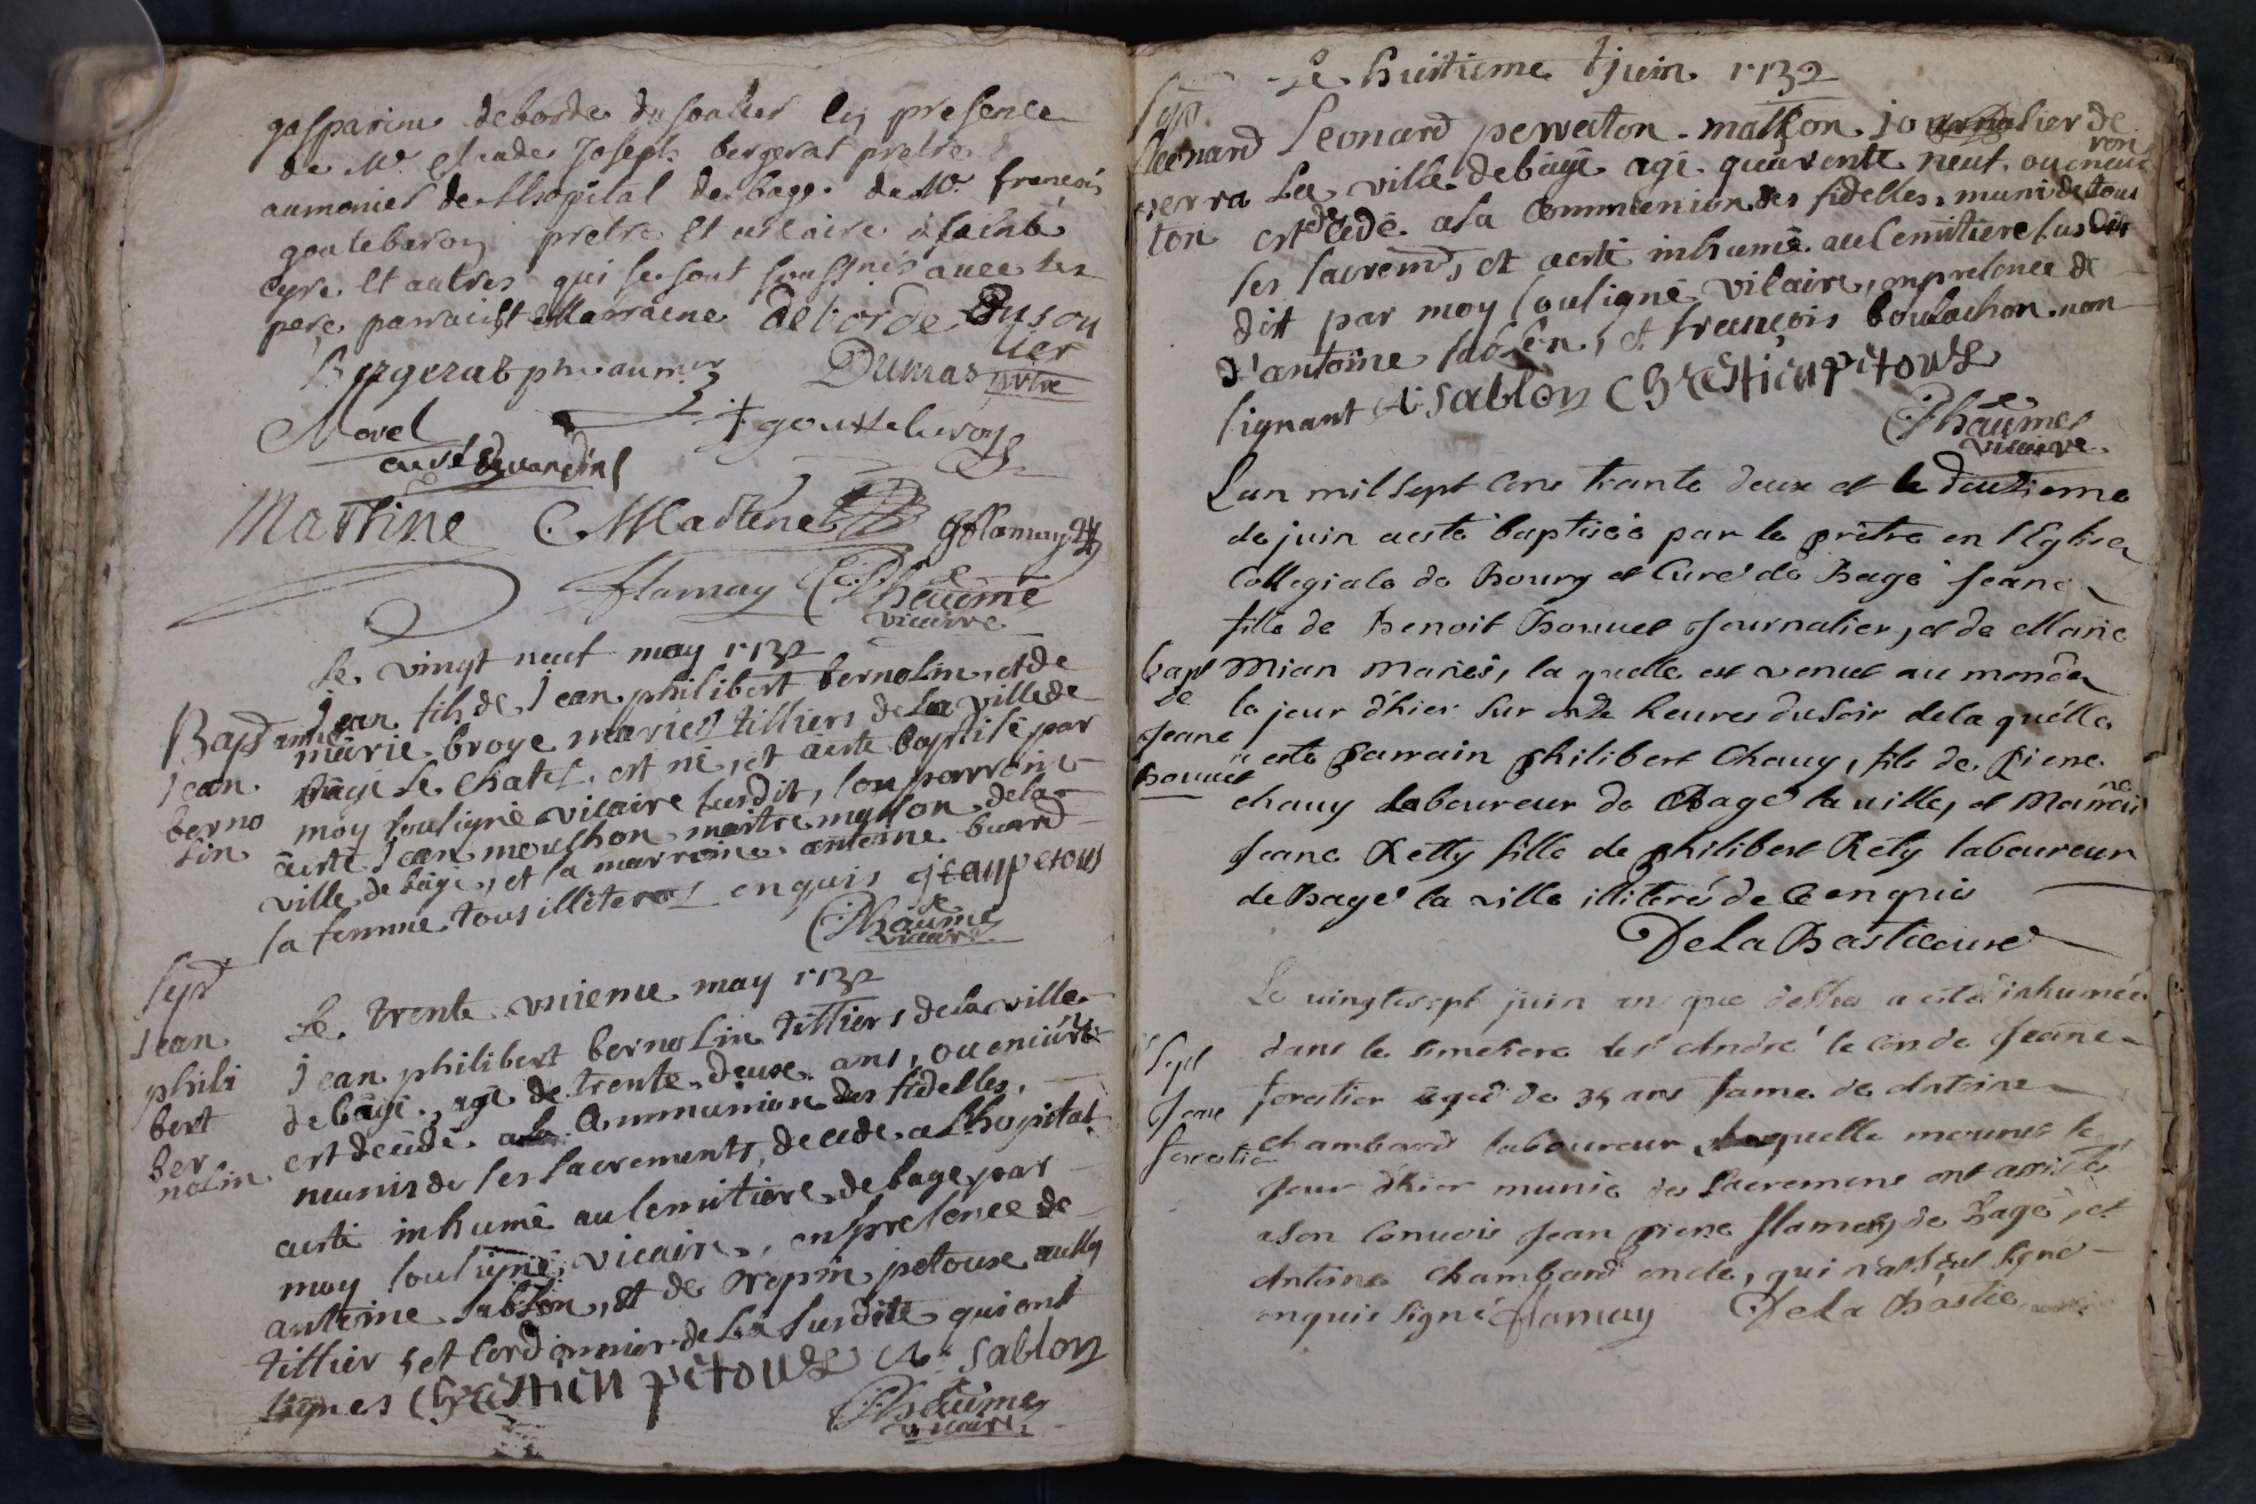 gasparine deborde dusoulier En presence
de Mr Claude Joseph bergerat pretre
aumonier de Lhopital de bage de Mr francois
goutebaron pretre Et vicaire a saint
Cyre Et autres qui se sont soussignés avec les
pere parrain et Marraine deborde Dusou
lier
Bergerat ptre aumer Dumas
Morel
curé
Martine C Martenet g flamay
flamay Rhéaume
vicaire
Le vingt neuf may 1732
Bapt Jean fils de Jean philibert bernolin et de
marie broye mariés tilliers de la ville de
Jean bâgé le chatel est né, et aesté baptisé par
berno moy souligné vicaire susdit, son parroin
lin aesté Jean mouthon maitre masson de la
ville de bâgé, et la marroine antoine buard
sa femme tous illiteres enquis jean petous
Rhéaume
vicaire
Sept
Le trente vnieme may 1732
Jean Jean philibert bernolin tilliers de la ville
phili de bâgé, agé de trente deuxe ans, ou environ
bert est decédé a la Communion des fidelles,
ber
nolin munis de ses sacrements, decede a Lhopital
aesté inhumé au semitiere de bage par
moy souligné vicaire, en presence de
antoine sablon, et de crepin petoux
tillier et cordonnier de la susdite qui ont
signes Chrestien pitous A sablon
Rhéaume
vicaire
Le huitieme juin 1732
Sept
Leonard Leonard perraton masson journalier de
perra La ville de bâgé agé quarente neuf ou environ
ton est decedé a la Communion des fidelles, muni de tous
ses sacremts, et aesté inhumé au semitiere susdit
dit par moy souligné vicaire, en presence de
d'antoine sablon, et françois boulachon non
signant A sablon Chrestien pitous
Rhéaume
vicaire
Lan mil sept Cens trante deux et le douzieme
de juin aesté baptiséé par le prêtre en l'Eglise
Collegiale de Bourg et Curé de Bagé Jeane
fille de Benoit Bouuet Journalier, et de Marie
bapt Mian Mariés, la quelle est venue au monde
de le jour d'hier sur onze heures du soir de la quélle
Jeane a esté parrain philibert Chauy, fils de Piere
Bouuet
chauy laboureur de Bagé la ville, et Mareine
Jeane Retty fille de philibert Réty laboureur
de Bagé la ville illiterés de ce enquis
De La Bastie curé
Le vingt sept juin an que dessus a esté inhumée
Sept dans le simetiere de st André le Conde Jeane
Jeane forestier agéé de 35 ans fame de Antoine
forestier chambard laboureur, laquelle mourut le
jour d'hier munie des Sacremens ont assisté
a son Convois Jean piere flamay de Bagé, et
Antoine chambard oncle, qui n'a sceut signé
enquis signé flamay De La Bastie